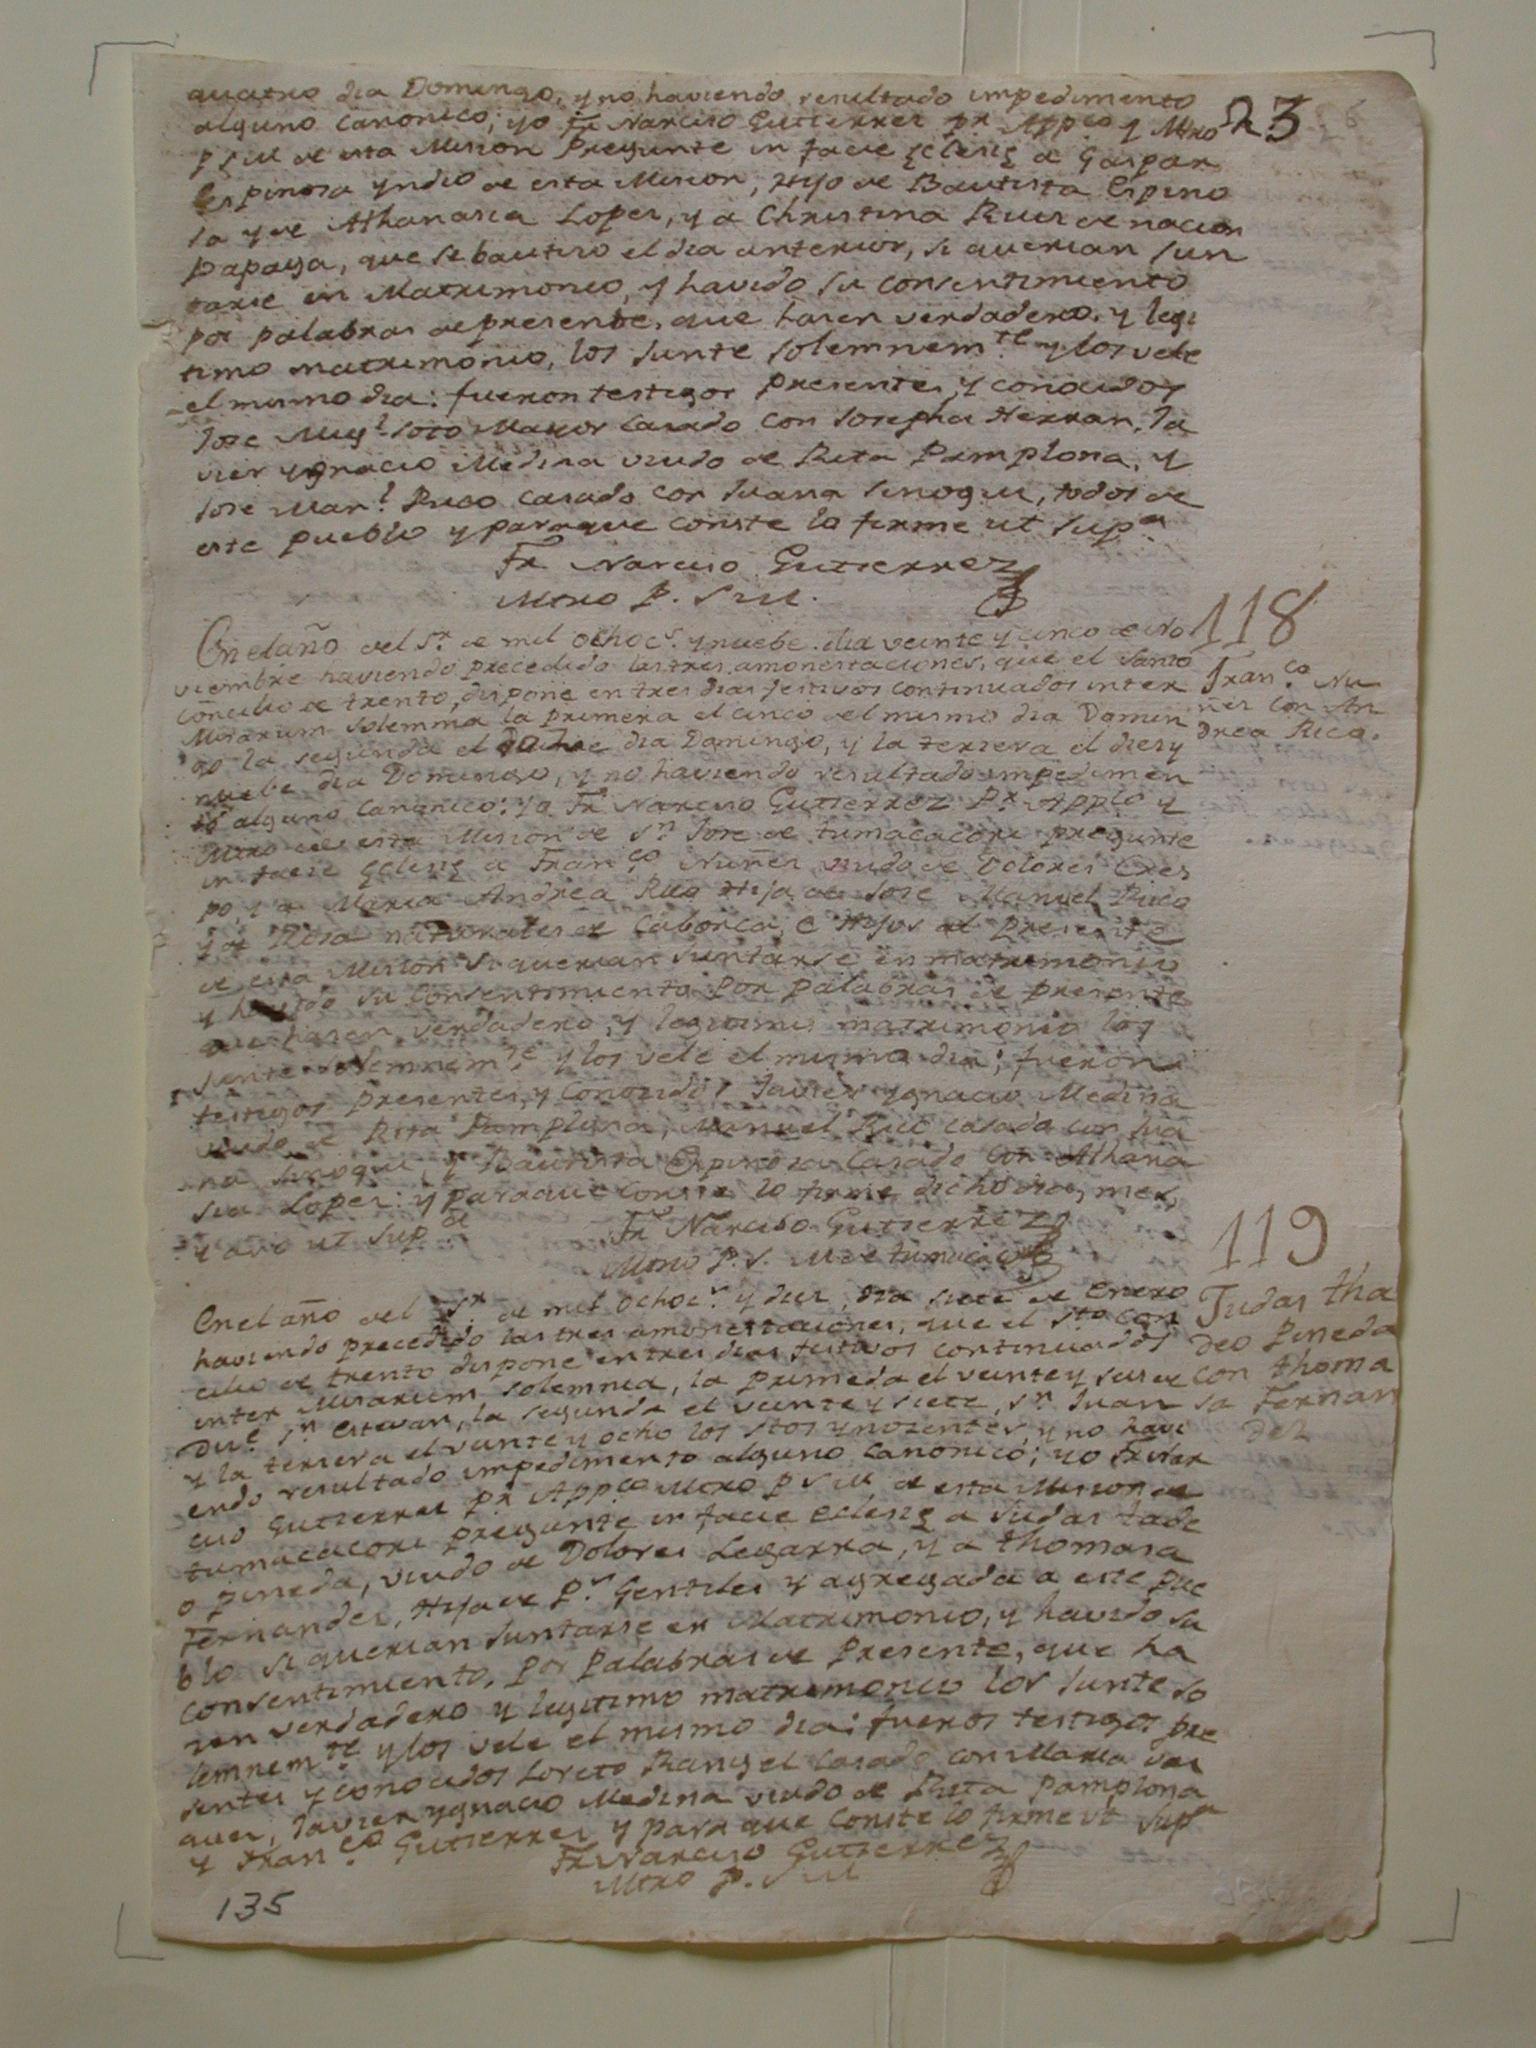 23
quatro dia Domingo, y no haviendo resultado impedimento
alguno canonico; yo Fr Narciso Gutierrez pr. Appco y Mtro
p S M de esta Mision Pregunte in facie Eclesie a Gaspar
Espinosa yndio de esta Mision, Hijo de Bautista Espino
sa y de Athanasia Lopes, y a Christina Ruis de nacion
papaga, que se bautiso el dia anterior, si querian jun
tarse en Matrimonio, y havido su consentimiento
por palabras de presente, que hasen verdadero, y legi
timo matrimonio, los junte solemnemte y los vele
el mismo dia: fueron testigos presentes, y conocidos
Jose Migl Soto Mayor casado con Josepha Herran, Ja
vier ygnacio Medina viudo de Rita Pamplona, y
Jose Manl Rico casado con Juana Sinogui, todos de
este pueblo y para que conste lo firme ut supra
Fr Narciso Gutierrez
Mtro P. S M.
118
Franco Nu
ñes con An
drea Rico.
En el año del Sr de mil ochocs y nuebe dia veinte y cinco de No
viembre haviendo precedido las tres amonestaciones, que el Santo
Concilio de trento, dispone en tres dias festivos continuados inter
Misarum solemnia la primera el cinco del mismo dia Domin
go la segunda el doce dia Domingo, y la tersera el dies y
nuebe dia Domingo, y no haviendo resultado impedimen
to alguno canonico: yo Fr Narciso Gutierrez Pr. Appco y
Mtro de esta Mision de Sn Jose de tumacacori pregunte
in facie Eclesie a Franco Nuñes viudo de Dolores Cres
po, y a Maria Andrea Rico Hija de Jose Manuel Rico
y de Rosa naturales de Caborca, e Hijos al presente
de esta Mision si querian juntarse en matrimonio
y havido su consentimiento por palabras de presente
que hasen verdadero, y legitimo matrimonio los
junte solemnemte y los vele el mismo dia; fueron
testigos presentes, y conocidos Javier ygnacio Medina
viudo de Rita Pamplona, Manuel Rico casado con Jua
na Sinogui, y Bautista Espinosa Casado con Athana
sia Lopes: y para que conste lo firme dicho dia, mes,
y año ut supra
Fr Narciso Gutierrez
Mtro P. S. M de tumacacori
119
Judas tha
deo Pineda
con thoma
sa Fernan
dez
En el año del Sr. de mil ochocs. y dies, dia siete de Enero
haviendo precedido las tres amonestaciones, que el Sto Con
cilio de trento dispone en tres dias festivos continuados
inter Misarum solemnia, la primera el veinte y seis de
Dice. Sn Estevan, la segunda el veinte y siete, Sn Juan
y la tersera el veinte y ocho los Stos ynosentes, y no havi
endo resultado impedimento alguno canonico; yo Fr Nar
ciso Gutierrez pr Appco Mtro P S M de esta Mision de
tumacacori pregunte in facie eclesie a Judas tade
o pineda, viudo de Dolores Legarra, y a thomasa
Fernandes, Hija de ps. Gentiles y agregada a este pue
blo si querian juntarse en Matrimonio, y havido su
consentimiento, por palabras de presente, que ha
sen verdadero y legitimo matrimonio los junte so
lemnemte y los vele el mismo dia; fueros testigos pre
sentes y conocidos Loreto Rangel casado con Maria Vas
ques, Javier ygnacio Medina viudo de Rita Pamplona
y Franco Gutierres y para que conste lo firme ut supra
Fr Narciso Gutierrez
Mtro P. S M
135